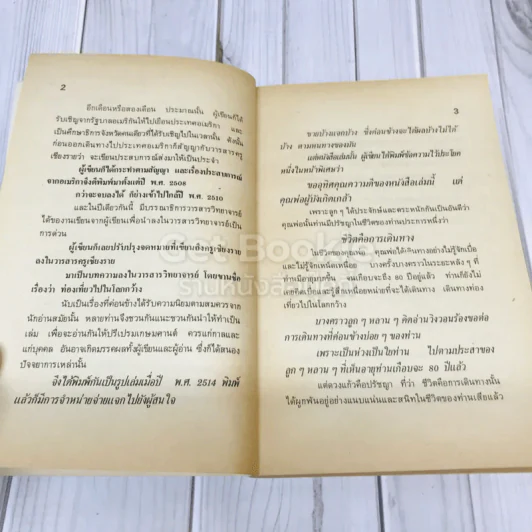 2
อีกเดือนหรือสองเดือน ประมาณนั้น ผู้เขียนก็ได้
รับเชิญจากรัฐบาลอเมริกันให้ไปเยือนประเทศอเมริกา และ
เป็นศึกษาธิการจังหวัดคนเดียวที่ได้รับเชิญไปในเวลานั้น ดังนั้น
ก่อนออกเดินทางไปประเทศอเมริกาก็สัญญากับวารสารครู
เชียงรายว่า จะเขียนประสบการณ์ส่งมาให้เป็นประจำ
ผู้เขียนก็ได้กระทำตามสัญญา และเรื่องประสบการณ์
จากอเมริกาจึงตีพิมพ์มาตั้งแต่ปี พ.ศ. 2508
กว่าจะจบลงได้ ก็ย่างเข้าไปใกล้ปี พ.ศ. 2510
และในปีเดียวกันนี้ มีบรรณาธิการวารสารวิทยาจารย์
ได้ของานเขียนจากผู้เขียนเพื่อนำลงในวารสารวิทยาจารย์เป็น
การด่วน
ผู้เขียนก็เลยปรับปรุงจดหมายที่เขียนถึงครูเชียงราย
ลงในวารสารครูเชียงราย
มาเป็นบทความลงในวารสารวิทยาจารย์ โดยขานชื่อ
เรื่องว่า ท่องเที่ยวไปในโลกกว้าง
นับเป็นเรื่องที่ค่อนข้างได้รับความนิยมตามสมควรจาก
นักอ่านสมัยนั้น หลายท่านจึงชวนกันแนะชวนกันนำให้ทำเป็น
เล่ม เพื่อจะอ่านกันให้ปรีเปรมเกษมศานต์ ควรแก่กาลและ
แก่บุคคล อันอาจเกิดมรรคผลทั้งผู้เขียนและผู้อ่าน ซึ่งก็ได้สนอง
ปัจจยาการเหล่านั้น
จึงได้พิมพ์กันเป็นรูปเล่มเมื่อปี พ.ศ. 2514 พิมพ์
แล้วก็มีการจำหน่ายจ่ายแจกไปยังผู้สนใจ
3
ขายบ้างแจกบ้าง ซึ่งค่อนข้างจะได้ผลบ้างไม่ได้
บ้าง ตามหนทางของมัน
แต่หนังสือเล่มนั้น ผู้เขียนได้พิมพ์ข้อความไว้ประโยค
หนึ่งในหน้าพิเศษว่า
ขออุทิศคุณความดีของหนังสือเล่มนี้ แด่
คุณพ่อผู้บังเกิดเกล้า
เพราะลูก ๆ ได้ประจักษ์และตระหนักกันเป็นอันดีว่า
คุณพ่อนั้นท่านมีปรัชญาในชีวิตของท่านประการหนึ่งว่า
ชีวิตคือการเดินทาง
ในชีวิตของคุณพ่อ คุณพ่อได้เดินทางอย่างไม่รู้จักเบื่อ
และไม่รู้จักเหน็ดเหนื่อย บางครั้งบางคราวในระยะหลัง ๆ ที่
ท่านมีอายุมากขึ้น จนเกือบจะถึง 80 ปีอยู่แล้ว ท่านก็ยังไม่
เคยคิดเบื่อและรู้สึกเหนื่อยหน่ายที่จะได้เดินทาง เดินทางท่อง
เที่ยวไปในโลกกว้าง
บางคราวลูก ๆ หลาน ๆ คิดอ่านวิงวอนร้องขอต่อ
การเดินทางที่ค่อนข้างบ่อย ๆ ของท่าน
เพราะเป็นห่วงเป็นใยท่าน ไปตามประสาของ
ลูก ๆ หลาน ๆ ที่เห็นอายุท่านเกือบจะ 80 ปีแล้ว
แต่ดวงแก้วคือปรัชญา ที่ว่า ชีวิตคือการเดินทางนั้น
ได้ผูกพันอยู่อย่างแนบแน่นและสนิทในชีวิตของท่านเสียแล้ว